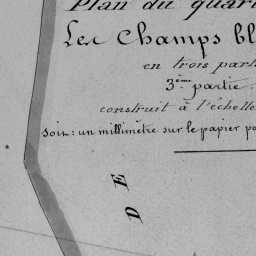 Plan du quar
Les Champs bl
en trois part
3ème partie:
construit à l'échelle
soit: un millimètre sur le papier po
DE